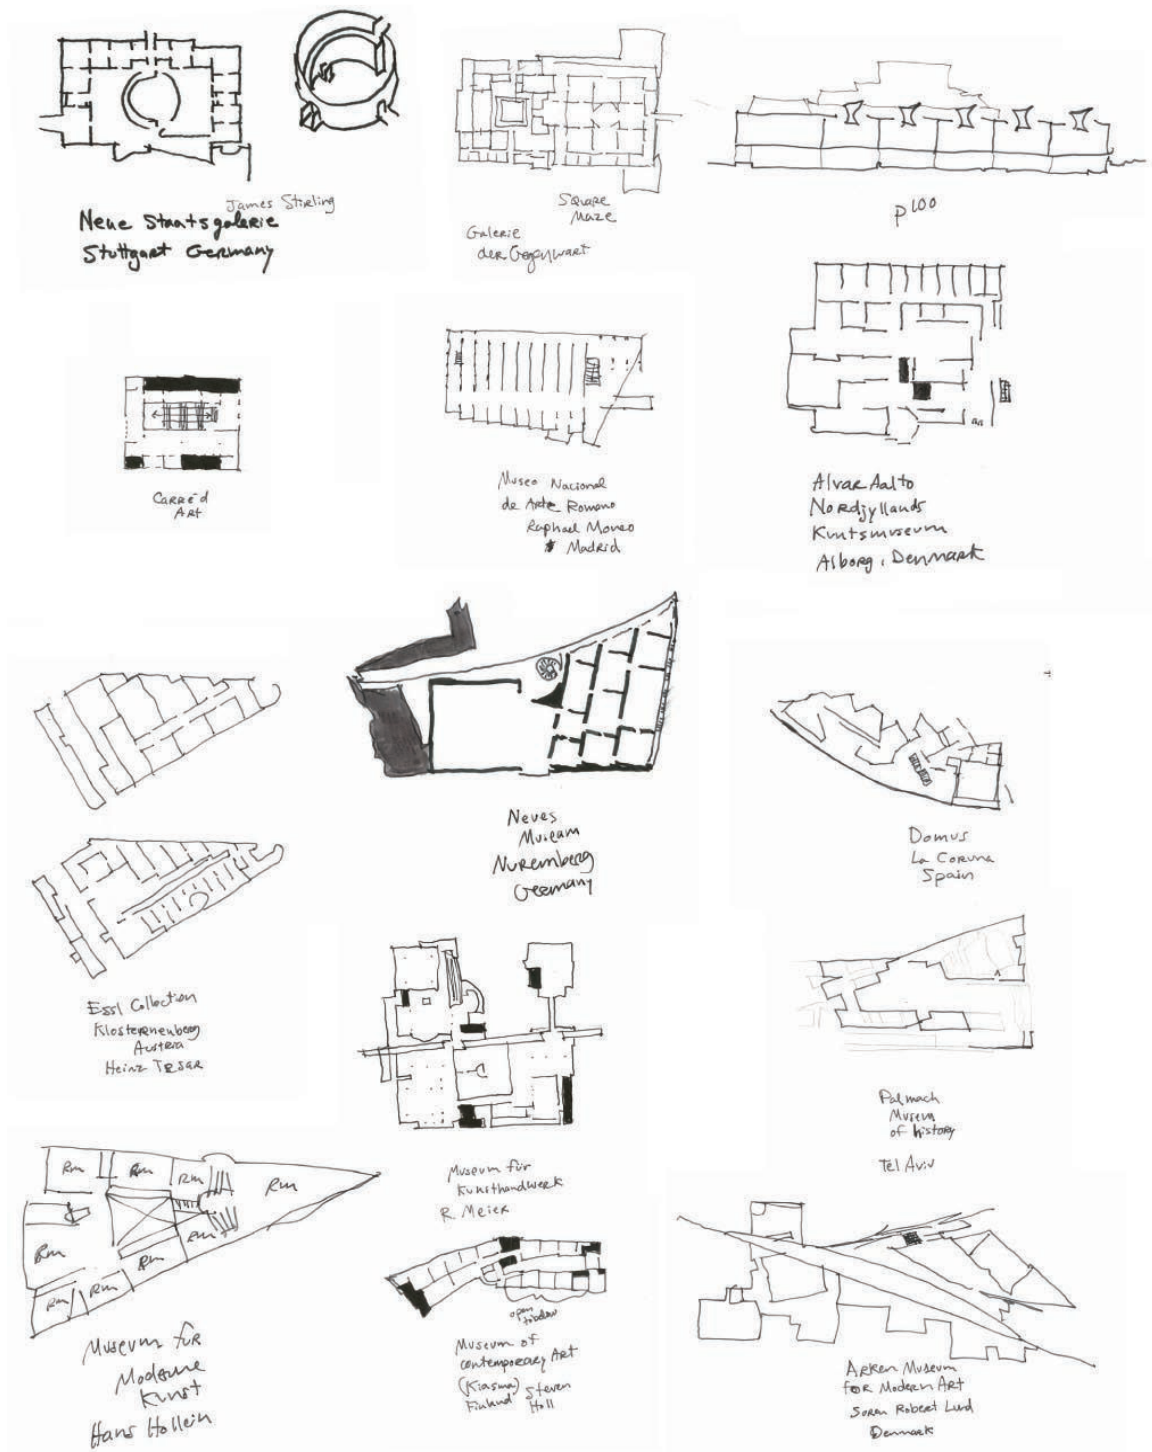 James Stirling
Neue Staatsgalerie
Stuttgart Germany
Square
Maze
Galerie
der Gegenwart
p100
Carré d
Art
Museo Nacional
de Arte Romano
Raphael Moneo
Madrid
Alvar Aalto
Nordjyllands
Kuntsmuseum
Alborg, Denmark
Neues
Museum
Nuremberg
Germany
Domus
La Coruna
Spain
Essl Collection
Klosterneuberg
Austria
Heinz Tesar
Museum für
Kunsthandwerk
R. Meier
Palmach
Museum
of history
Tel Aviv
Rm
Rm
Rm
Rm
Rm
Rm
Rm
Rm
Rm
Museum für
Moderne
Kunst
Hans Hollein
open
to below
Museum of
contemporary Art
(Kiasma) Steven
Finland Holl
Arken Museum
for Modern Art
Soren Robert Lund
Denmark